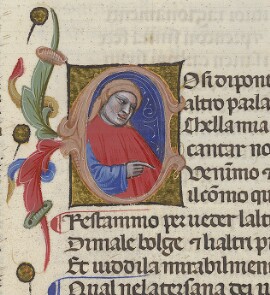 COsi dipont
altro parla
Chella mia
cantar no
Venimo &
il como qu
Restammo per ueder lalt
Dimale bolge & haltri p
Et uiddila mirabilmen
Qual nelatersana dei u